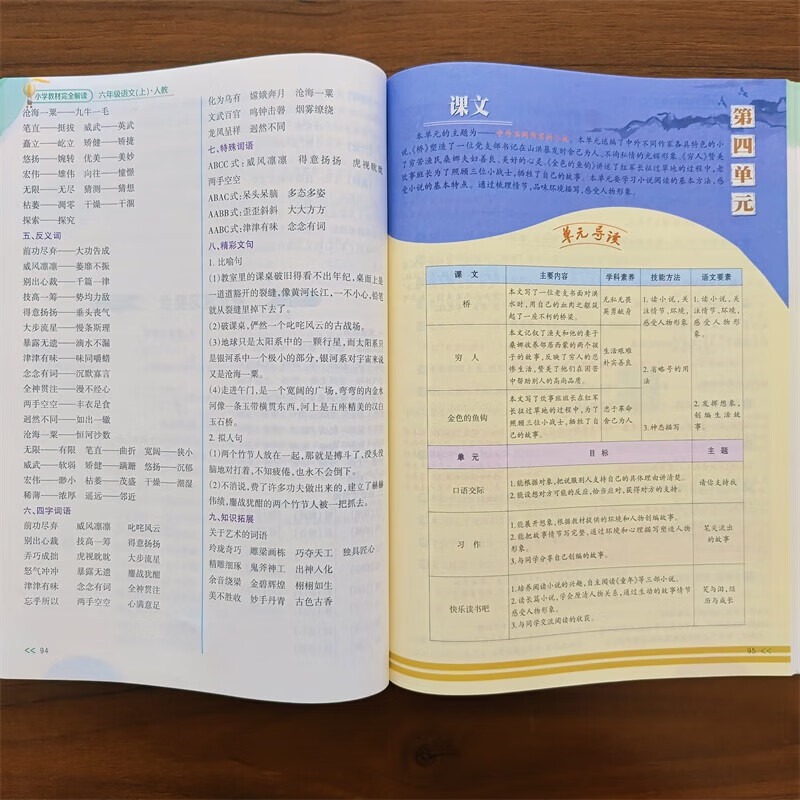 小学教材完全解读 六年级语文(上)·人教
沧海一粟——九牛一毛
笔直——挺拔 威武——英武
矗立——屹立 矫健——矫捷
悠扬——婉转 优美——美妙
宏伟——雄伟 向往——憧憬
无限——无尽 猜测——猜想
枯萎——凋零 干燥——干涸
探索——探究
五、反义词
前功尽弃——大功告成
威风凛凛——萎靡不振
别出心裁——千篇一律
技高一筹——势均力敌
得意扬扬——垂头丧气
大步流星——慢条斯理
暴露无遗——滴水不漏
津津有味——味同嚼蜡
念念有词——沉默寡言
全神贯注——漫不经心
两手空空——丰衣足食
迥然不同——如出一辙
沧海一粟——恒河沙数
无限——有限 笔直——曲折 宽阔——狭小
威武——软弱 矫健——蹒跚 悠扬——沉郁
宏伟——渺小 枯萎——茂盛 干燥——潮湿
稀薄——浓厚 遥远——邻近
六、四字词语
前功尽弃 威风凛凛 叱咤风云
别出心裁 技高一筹 得意扬扬
弄巧成拙 虎视眈眈 大步流星
怒气冲冲 暴露无遗 鏖战犹酣
津津有味 念念有词 全神贯注
忘乎所以 两手空空 心满意足
<< 94
化为乌有 嫦娥奔月 沧海一粟
文武百官 鸣钟击磬 烟雾缭绕
龙凤呈祥 迥然不同
七、特殊词语
ABCC式：威风凛凛 得意扬扬 虎视眈眈
两手空空
ABAC式：呆头呆脑 多态多姿
AABB式：歪歪斜斜 大大方方
AABC式：津津有味 念念有词
八、精彩文句
1. 比喻句
(1)教室里的课桌破旧得看不出年纪，桌面上是
一道道豁开的裂缝，像黄河长江，一不小心，铅笔
就从裂缝里掉下去了。
(2)破课桌，俨然一个叱咤风云的古战场。
(3)地球只是太阳系中的一颗行星，而太阳系只
是银河系中一个极小的部分，银河系对宇宙来说
又是沧海一粟。
(4)走进午门，是一个宽阔的广场，弯弯的内金水
河像一条玉带横贯东西，河上是五座精美的汉白
玉石桥。
2. 拟人句
(1)两个竹节人放在一起，那就是搏斗了，没头没
脑地对打着，不知疲倦，也永不会倒下。
(2)不消说，费了许多功夫做出来的，建立了赫赫
伟绩，鏖战犹酣的两个竹节人被一把抓去。
九、知识拓展
关于艺术的词语
玲珑奇巧 雕梁画栋 巧夺天工 独具匠心
精雕细琢 鬼斧神工 出神入化
余音绕梁 金碧辉煌 栩栩如生
美不胜收 妙手丹青 古色古香
课文
第四单元
本单元的主题为——
本单元选编了中外不同作家各具特色的小
说，《桥》塑造了一位老支部书记在山洪暴发时舍己为人、不徇私情的光辉形象。《穷人》赞美
了穷苦渔民桑娜夫妇善良、美好的心灵。《金色的鱼钩》讲述了红军长征过草地的过程中，老
炊事班长为了照顾三位小战士，牺牲了自己的故事。本单元要学习小说阅读的基本方法，感
受小说的基本特点。通过梳理情节，品味环境描写，感受人物形象。
单元导读
课 文 主要内容 学科素养 技能方法 语文要素
桥
本文写了一位老支书面对洪
水时，用自己的血肉之躯筑
起了一座不朽的桥梁。
无私无畏
英勇献身
穷 人
本文记叙了渔夫和他的妻子
桑娜收养邻居西蒙的两个孩
子的故事，反映了穷人的悲
惨生活，赞美了他们在困苦
中帮助别人的高尚品质。
生活艰难
朴实善良
金色的鱼钩
本文写了炊事班班长在红军
长征过草地的过程中，为了
照顾三位小战士，牺牲了自
己的故事。
忠于革命
舍己为人
1. 读小说，关
注情节、环境，
感受人物形象。
2. 省略号的用
法
3. 神态描写
1. 读小说，关
注情节、环境，
感受人物形象。
2. 发挥想象，
创编生活故
事。
单 元 目 标 主 题
口语交际
1.能根据对象，把说服别人支持自己的具体理由讲清楚。
2.能设想对方可能的反应，恰当应对，获得对方的支持。
请你支持我
习 作
1.能展开想象，根据教材提供的环境和人物创编故事。
2.能把故事情节写完整，通过环境和心理描写塑造人物
形象。
3.与同学分享自己创编的故事。
笔尖流出
的故事
快乐读书吧
1.培养阅读小说的兴趣，自主阅读《童年》等三部小说。
2.读长篇小说，学会厘清人物关系，通过生动的故事情节
感受人物形象。
3.与同学交流阅读的收获。
笑与泪，经
历与成长
95 <<